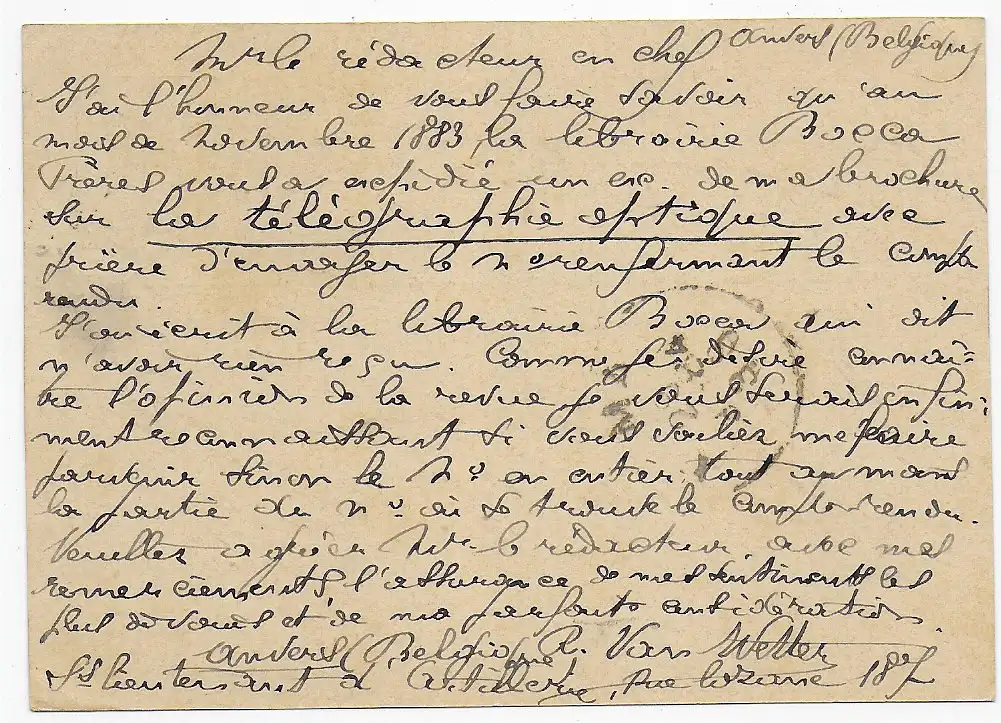 Anvers (Belgique)
Mr le rédacteur en chef
J'ai l'honneur de vous faire savoir qu'au
mois de novembre 1883, la librairie Bocca
Frères vous a expédié un ex. de ma brochure
sur la télégraphie optique avec
prière d'envoyer le no renfermant le compte
rendu.
J'ai écrit à la librairie Bocca qui dit
n'avoir rien reçu. Comme je désire connaî-
tre l'opinion de la revue je vous serais infini-
ment reconnaissant si vous vouliez me faire
parvenir sinon le No en entier, tout au moins
la partie du no où se trouve le compte rendu.
Veuillez agréer Mr le rédacteur, avec mes
remerciements l'assurance de mes sentiments les
plus dévoués et de ma parfaite considération.
Anvers (Belgique) R. Van Wetter
St lieutenant d'artillerie, rue Lozane